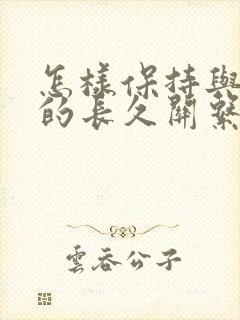 怎樣保持與
的長久關繫
雲吞公子